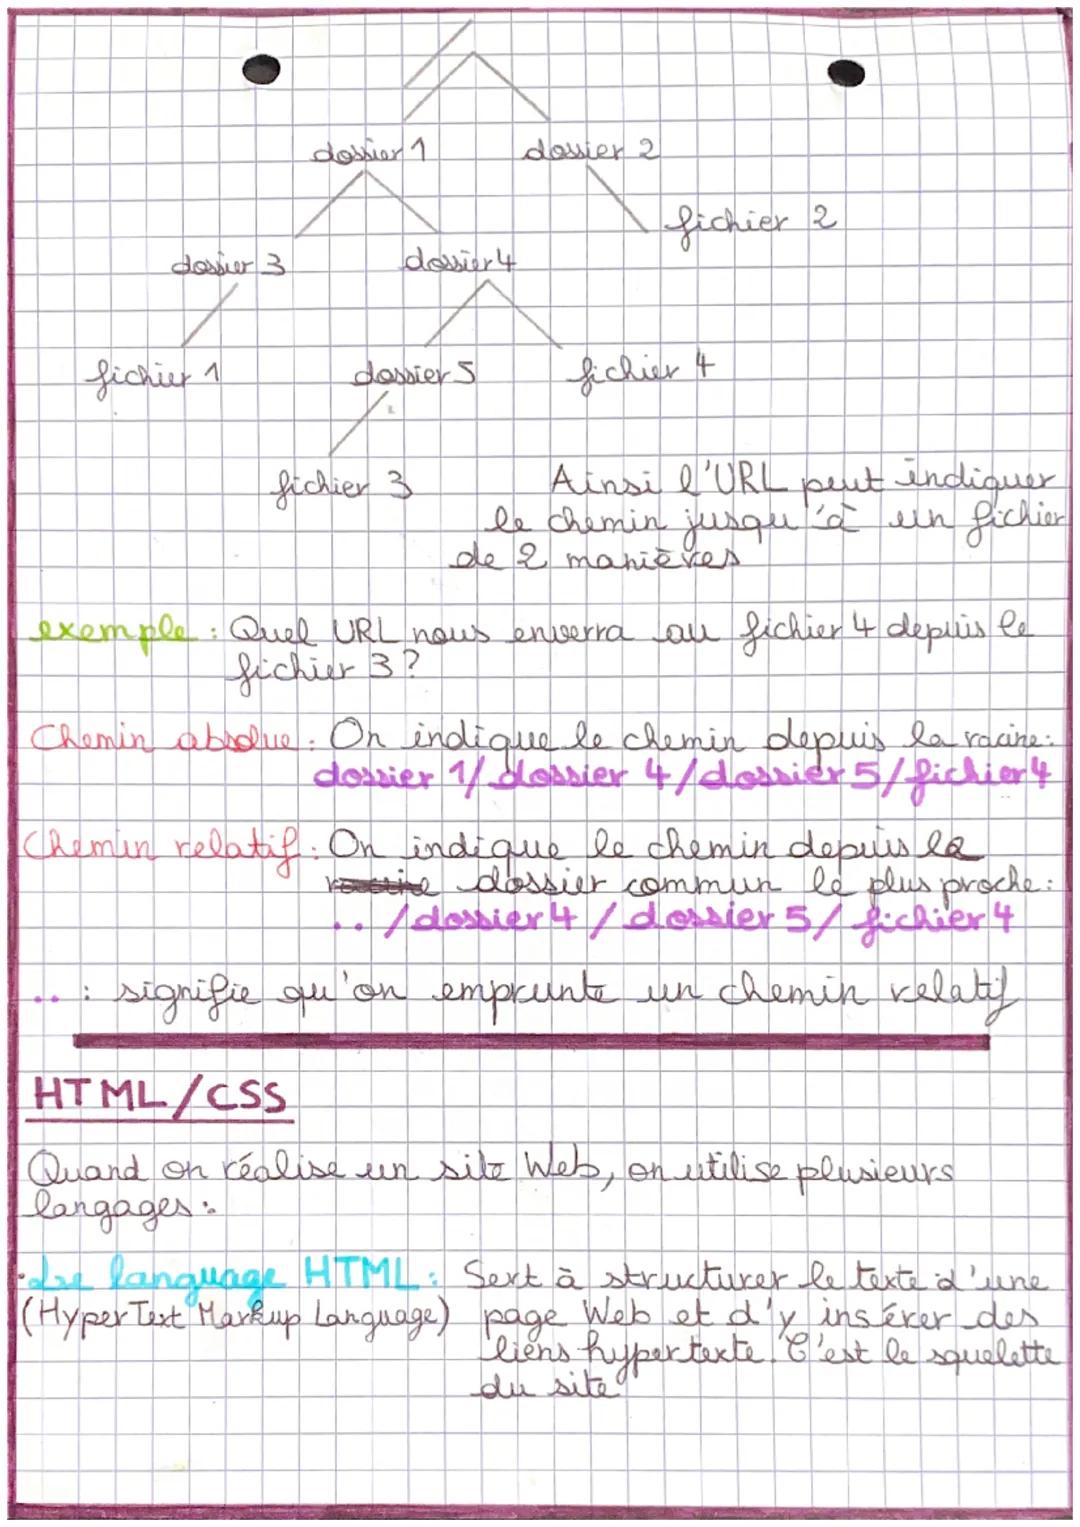 /
dossier 1 dossier 2
fichier 2
dossier 3 dossier 4
fichier 1 dossier 5 fichier 4
fichier 3 Ainsi l'URL peut indiquer
le chemin jusqu'à un fichier
de 2 manières
exemple : Quel URL nous enverra au fichier 4 depuis le
fichier 3 ?
Chemin absolue : On indique le chemin depuis la racine :
dossier 1/ dossier 4/dossier 5/fichier 4
Chemin relatif : On indique le chemin depuis le
dossier commun le plus proche :
.. /dossier 4 / dossier 5/ fichier 4
.. : signifie qu'on emprunte un chemin relatif
HTML/CSS
Quand on réalise un site Web, on utilise plusieurs
langages :
• Le language HTML : Sert à structurer le texte d'une
(HyperText Markup Language) page Web et d'y insérer des
liens hypertexte. C'est le squelette
du site